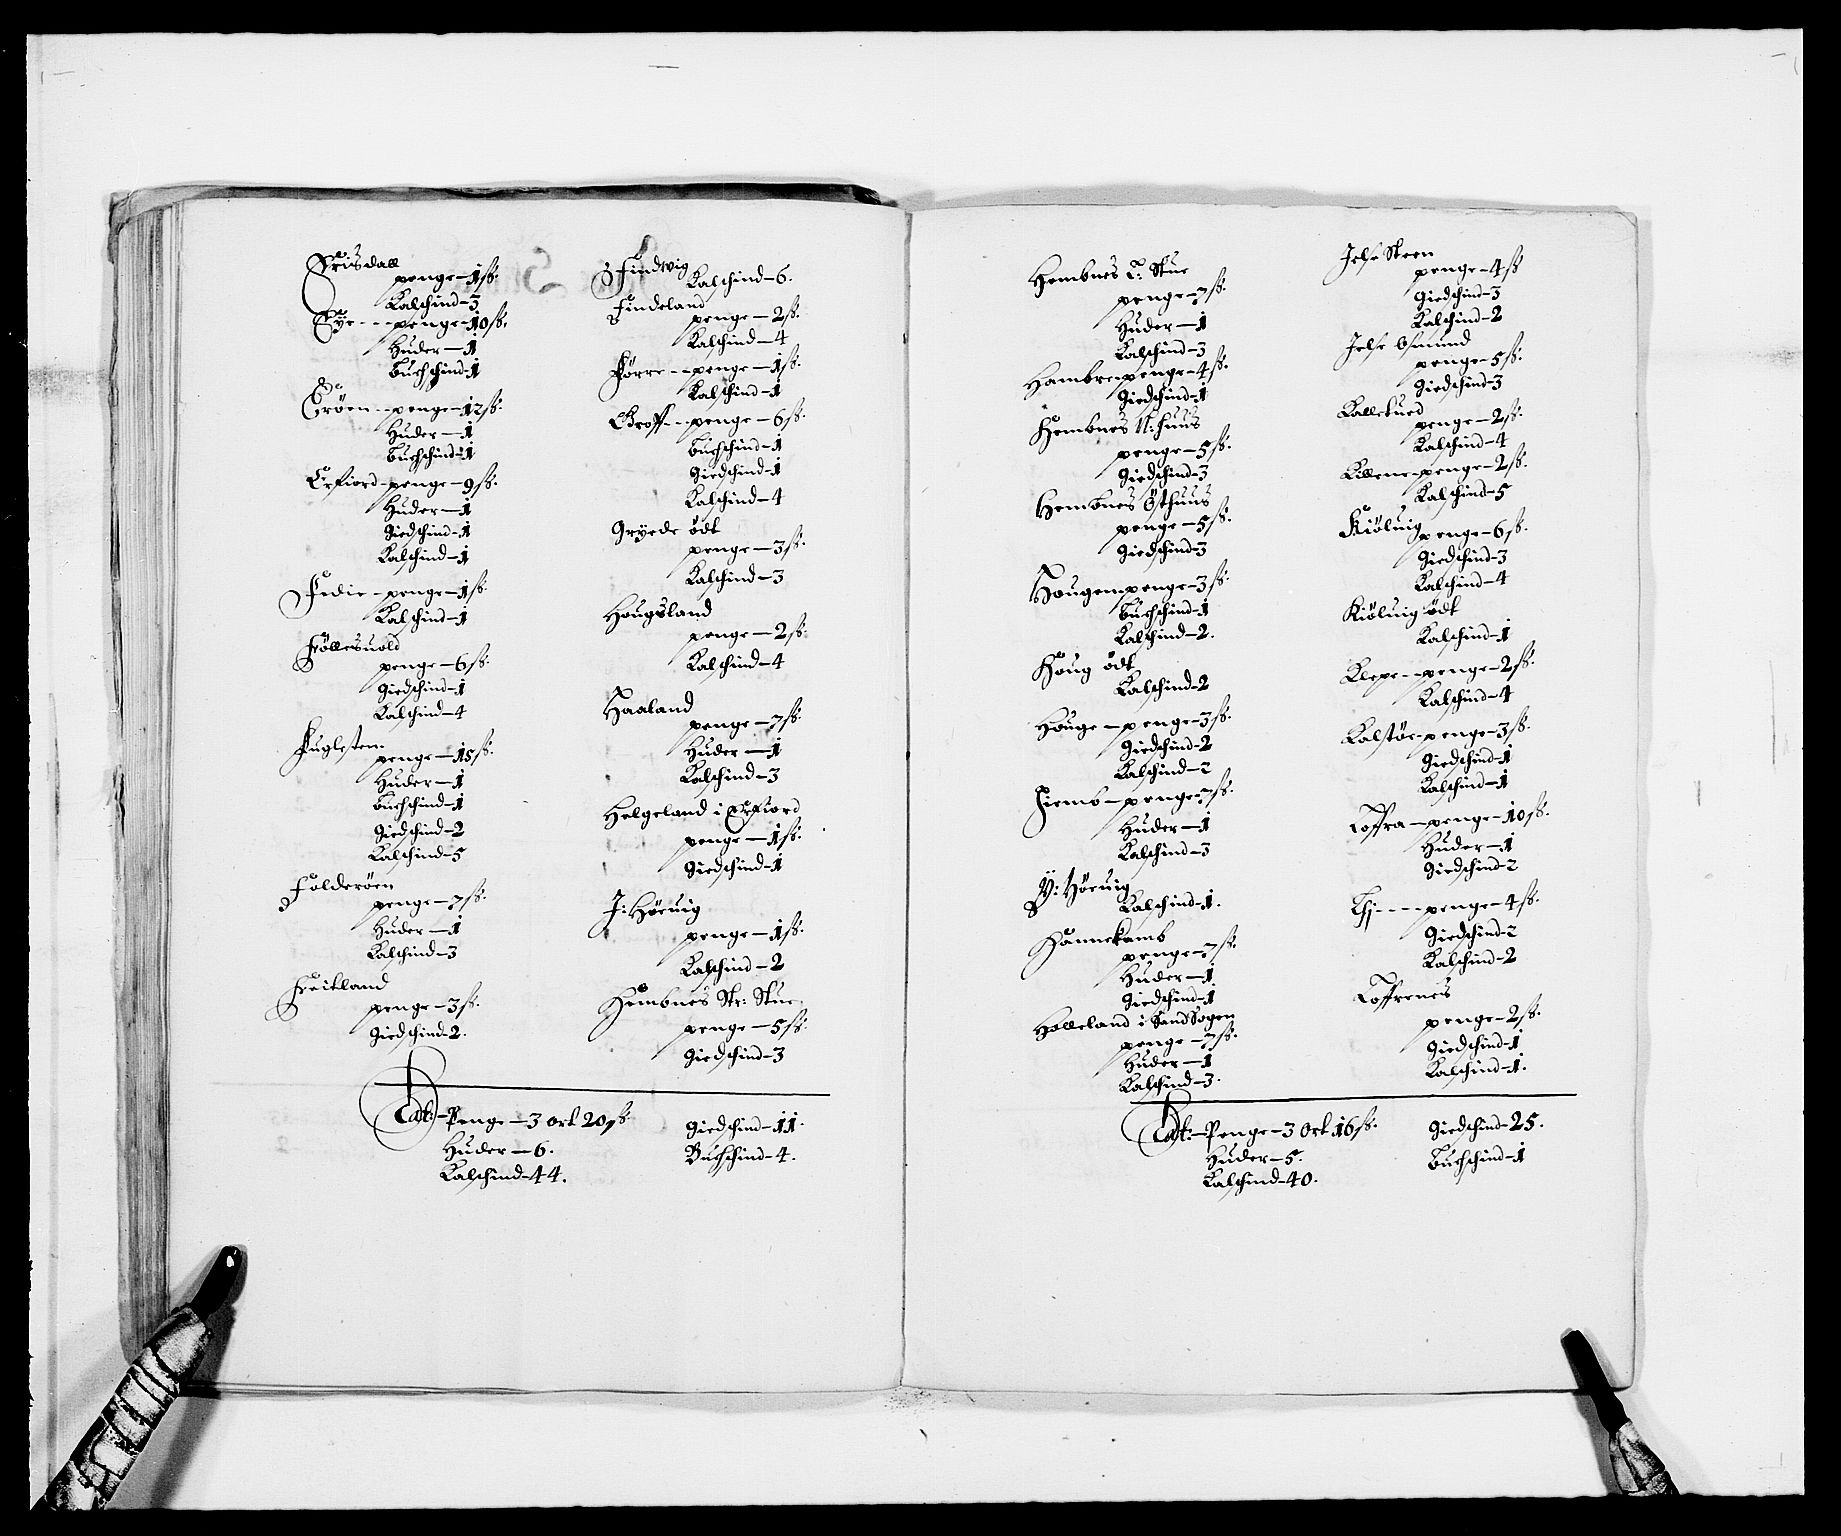 Erisdall
penge - 1 ß.
Kalschind - 3
Eÿe - - - penge - 10 ß.
Huder - 1
Buchschind - 1
Erøen - - penge - 12 ß.
Huder - 1
Buchschind - 1
Erfiord - penge - 9 ß.
Huder - 1
Giedschind - 1
Kalschind - 1
Fedie - penge - 1 ß.
Kalschind - 1
Føllesuold
penge - 6 ß.
Giedschind - 1
Kalschind - 4
Fuglesten
penge - 15 ß.
Huder - 1
Buchschind - 1
Giedschind - 2
Kalschind - 5
Folderøen
penge - 7 ß.
Huder - 1
Kalschind - 3
Feitland
penge - 3 ß.
Giedschind - 2.
Findwig
Kalschind - 6.
Findeland
penge - 2 ß.
Kalschind - 4
Førre - - penge - 1 ß.
Kalschind - 1
Groff - - penge - 6 ß.
Buchschind - 1
Giedschind - 1
Kalschind - 4
Gryede ödt
penge - 3 ß.
Kalschind - 3
Hougsland
penge - 2 ß.
Kalschind - 4
Haaland
penge - 7 ß.
Huder - 1
Kalschind - 3
Helgeland i Erfiord
penge - 1 ß.
Giedschind - 1
J: Høeuig
penge - 1 ß.
Kalschind - 2
Hembnes Str: Stue
penge - 5 ß.
Giedschind - 3
Lat: - Penge - 3 ort 20 ß
Huder - 6.
Kalschind - 44.
Giedschind - 11.
Buchschind - 4.
Hembnes L: Stue
penge - 7 ß.
Huder - 1
Kalschind - 3
Hambre - penge - 4 ß.
Giedschind - 1
Hembnes N: huus
penge - 5 ß.
Giedschind - 3
Hembnes Østhuus
penge - 5 ß.
Giedschind - 3
Hougen penge - 3 ß.
Buchschind - 1
Kalschind - 2.
Houg ödt
Kalschind - 2
Houge - penge - 3 ß.
Giedschind - 2
Kalschind - 2
Hiemb - penge - 7 ß.
Huder - 1
Kalschind - 3
Y: Høeuig
Kalschind - 1.
Hannekamb
penge - 7 ß.
Huder - 1
Giedschind - 1
Holleland i Sand Sogen
penge - 7 ß.
Huder - 1
Kalschind - 3.
Jelse Steen
penge - 4 ß
Giedschind - 3
Kalschind - 2
Jelse Osmund
penge - 5 ß.
Giedschind - 3
Kallekued
penge - 2 ß.
Kalschind - 4
Killene - penge - 2 ß.
Kalschind - 5
Kiøluig penge - 6 ß.
Giedschind - 3
Kalschind - 4
Kiøluig ödt
Kalschind - 1
Klepe - - penge - 2 ß.
Kalschind - 4
Kalstøe - penge - 3 ß.
Giedschind - 1
Kalschind - 1
Loffra - penge - 10 ß.
Huder - 1
Giedschind - 2
Lj - - - - penge - 4 ß.
Giedschind - 2
Kalschind - 2
Loffrenes
penge - 2 ß.
Giedschind - 1
Kalschind - 1.
Lat: - Penge - 3 Ort 16 ß.
Huder - 5.
Kalschind - 40.
Giedschind - 25.
Buchschind - 1